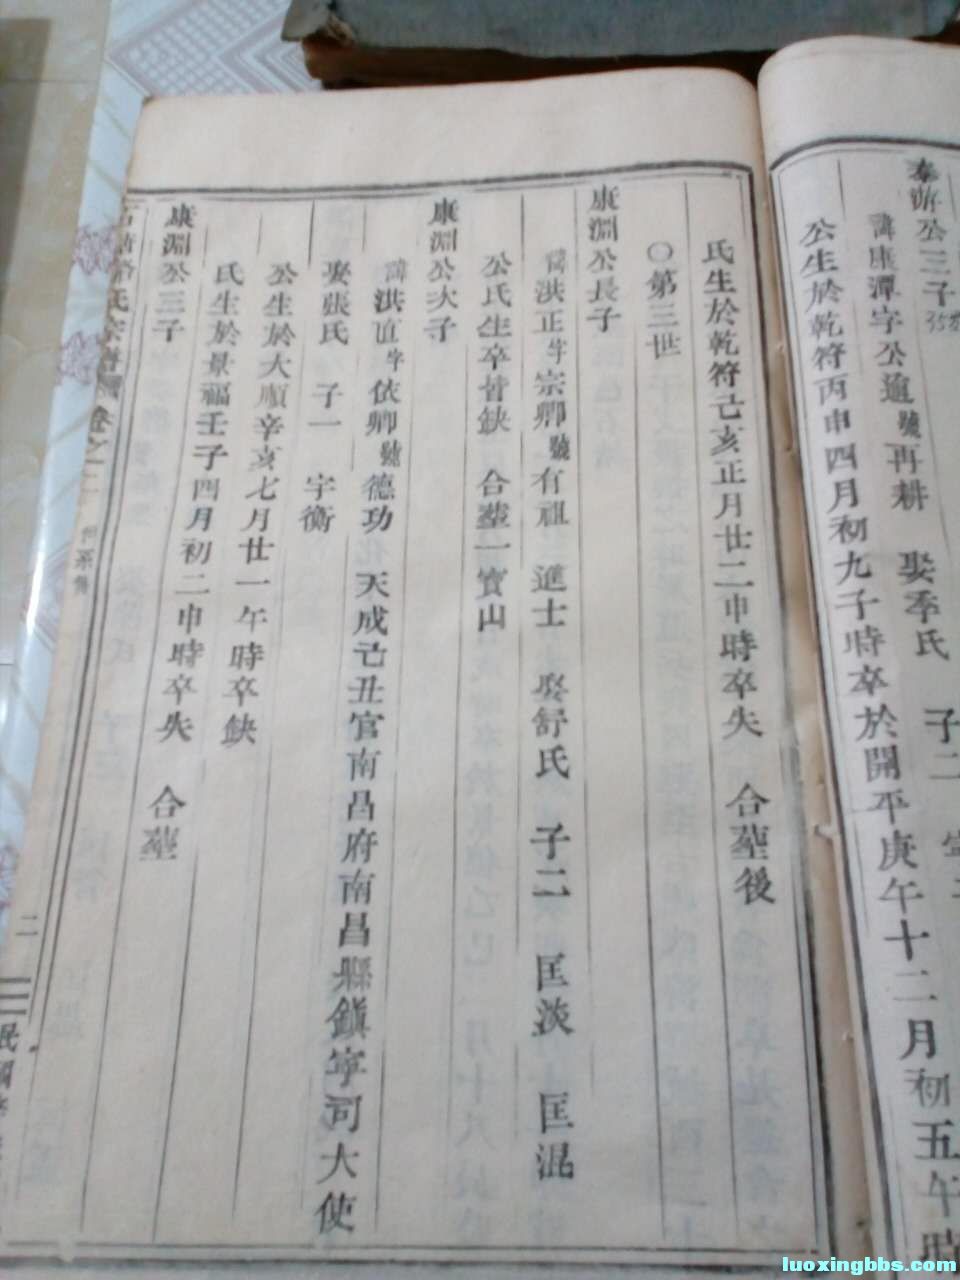 泰游公三子
諱康潭字公遒號再耕 娶季氏 子二
公生於乾符丙申四月初九子時卒於開平庚午十二月初五午時
氏生於乾符己亥正月廿二申時卒失 合塟後
〇第三世
康淵公長子
諱洪正字宗卿號有祖 進士 娶舒氏 子二 匡淡 匡混
公氏生卒皆缺 合塟一寶山
康淵公次子
諱洪直字依卿號德功 天成己丑官南昌府南昌縣鎭寜司大使
娶張氏 子一 宇衡
公生於大順辛亥七月廿一午時卒缺
氏生於景福壬子四月初二申時卒失 合塟
康淵公三子
氏宗譜 卷之二 二 民國
luoxingbbs.com